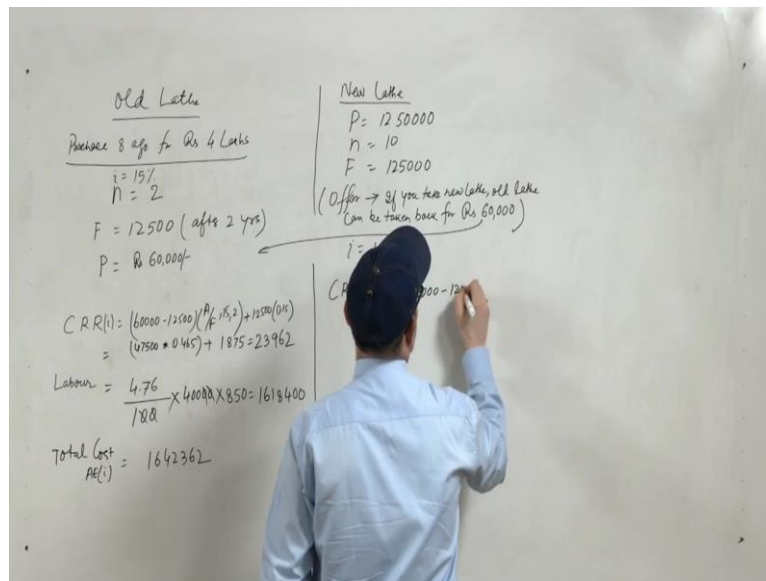 Old Lathe
Purchase 8 ago for Rs 4 Lachs
i = 15%
n = 2
F = 12500 (after 2 yrs)
P = Rs 60,000/-
CRR(i) = (60000 - 12500)(A/P,15,2) + 12500(0.15)
= (47500 * 0.465) + 1875 = 23962
Labour = 4.76/100 × 40000 × 850 = 1618400
Total Cost AE(i) = 1642362
New Lathe
P = 1250000
n = 10
F = 125000
(Offer → If you take new lathe, old lathe
can be taken back for Rs 60,000)
i =
CR 000 - 12